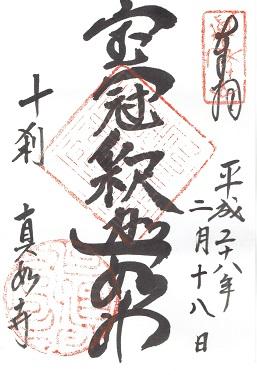 奉拝
平成二十八年
二月十八日
宝冠釈迦如来
十刹
真如寺